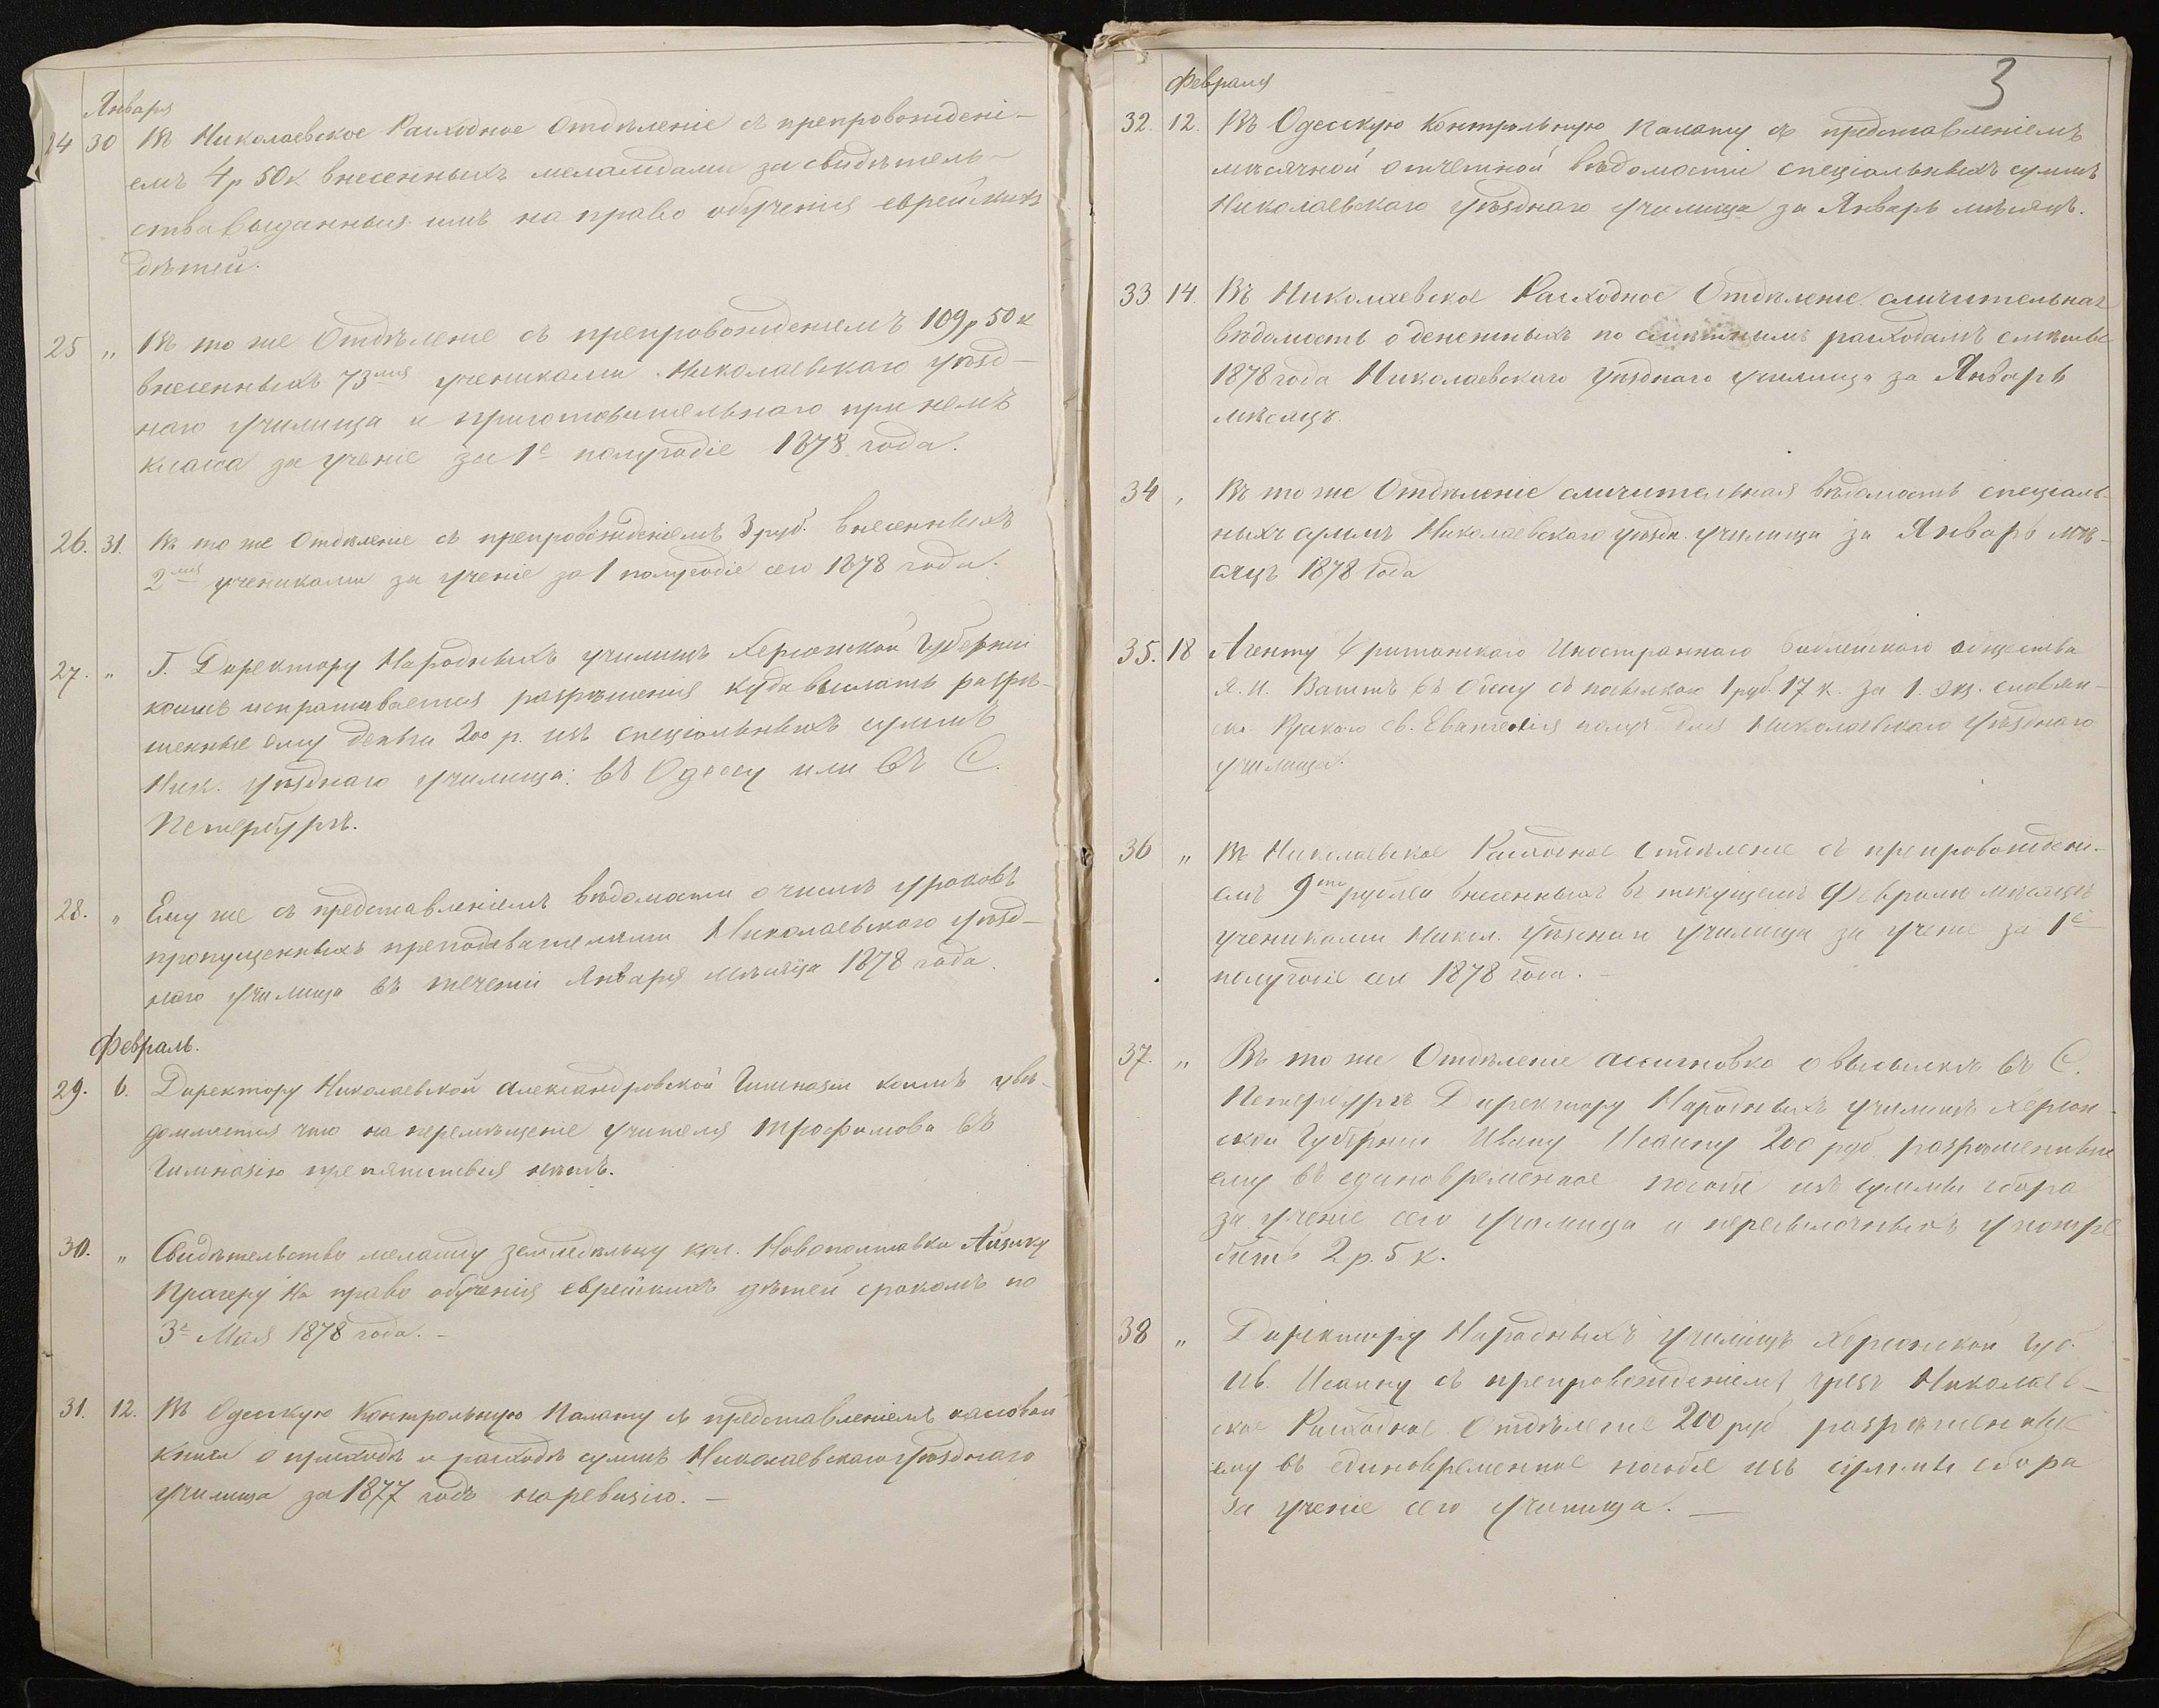 Января
24 30 Въ Николаевское Расходное Отдѣленіе съ препровожденi-
емъ 4 р 50 к внесенныхъ меламдами за свидѣтель-
ства выданныя имъ на право обученія еврейскихъ
дѣтей.
25 „ Въ то же Отдѣленіе съ препровожденіемъ 109 р 50 к
внесенныхъ 73мя учениками Николаевскаго уѣзд-
наго училища и приготовительнаго при немъ
класса за ученіе за 1е полугодіе 1878 года.
26. 31. Въ то же Отдѣленіе съ препровожденіемъ 3 руб. внесенныхъ
2мя учениками за ученіе за 1 полугодіе сего 1878 года.
27. „ Г. Директору Народныхъ училищъ Херсонской Губерніи
коимъ испрашивается разрѣшенія куда выслать разрѣ-
шенные ему деньги 200 р. изъ спеціальныхъ суммъ
Ник. уѣзднаго училища: въ Одессу или въ С.
Петербургъ.
28. „ Ему же съ представленіемъ вѣдомости о числѣ уроковъ
пропущенныхъ преподавателями Николаевскаго уѣзд-
наго училища въ теченіи Января мѣсяца 1878 года.
Февраль.
29. 6. Директору Николаевской Александровской Гимназіи коимъ увѣ-
домляется что на перемѣщеніе учителя Трофимова въ
Гимназію препятствія нѣтъ.
30. „ Свидѣтельство меламду земледѣльцу кол. Новополтавки Айзику
Прагеру на право обученія еврейскихъ дѣтей срокомъ по
3е Мая 1878 года. –
31. 12. Въ Одесскую Контрольную Палату съ представленіемъ кассовой
книги о приходѣ и расходѣ суммъ Николаевскаго уѣзднаго
училища за 1877 годъ на ревизію. –
3
Февраля
32. 12. Въ Одесскую Контрольную Палату съ представленіемъ
мѣсячной отчетной вѣдомости спеціальныхъ суммъ
Николаевскаго уѣзднаго училища за Январь мѣсяцъ.
33 14. Въ Николаевское Расходное Отдѣленіе сличительная
вѣдомость о денежныхъ по смѣтнымъ расходамъ смѣты
1878 года Николаевскаго уѣзднаго училища за Январь
мѣсяцъ.
34 „ Въ то же Отдѣленіе сличительная вѣдомость спеціаль-
ныхъ суммъ Николаевскаго уѣздн. училища за Январь мѣ-
сяцъ 1878 года
35. 18 Агенту Британскаго Иностраннаго Библейскаго общества
Я. И. Ваттъ въ Одессу съ посылкою 1 руб. 17 к. за 1. экз. славян-
ско. Рускаго Св. Евангелія получ. для Николаевскаго уѣзднаго
училища.
36 „ Въ Николаевское Расходное Отдѣленіе съ препровожденi-
емъ 9ти рублей внесенныхъ въ текущемъ Февралѣ мѣсяцѣ
учениками Никол. уѣзднаго училища за ученіе за 1е
полугодіе сего 1878 года. –
37. „ Въ то же Отдѣленіе ассигновка о высылкѣ въ С.
Петербургъ Директору Народныхъ училищъ Херсон-
ской Губерніи Ивану Исаину 200 руб разрѣшенныхъ
ему въ единовременное пособіе изъ суммы сбора
за ученіе сего училища и пересылочныхъ употре
бить 2 р. 5 к.
38 „ Директору Народныхъ училищъ Херсонской Губ.
Ив. Исаину съ препровожденіемъ чрезъ Николаев-
ское Расходное Отдѣленіе 200 руб разрѣшенныхъ
ему въ единовременное пособіе изъ суммы сбора
за ученіе сего училища. –